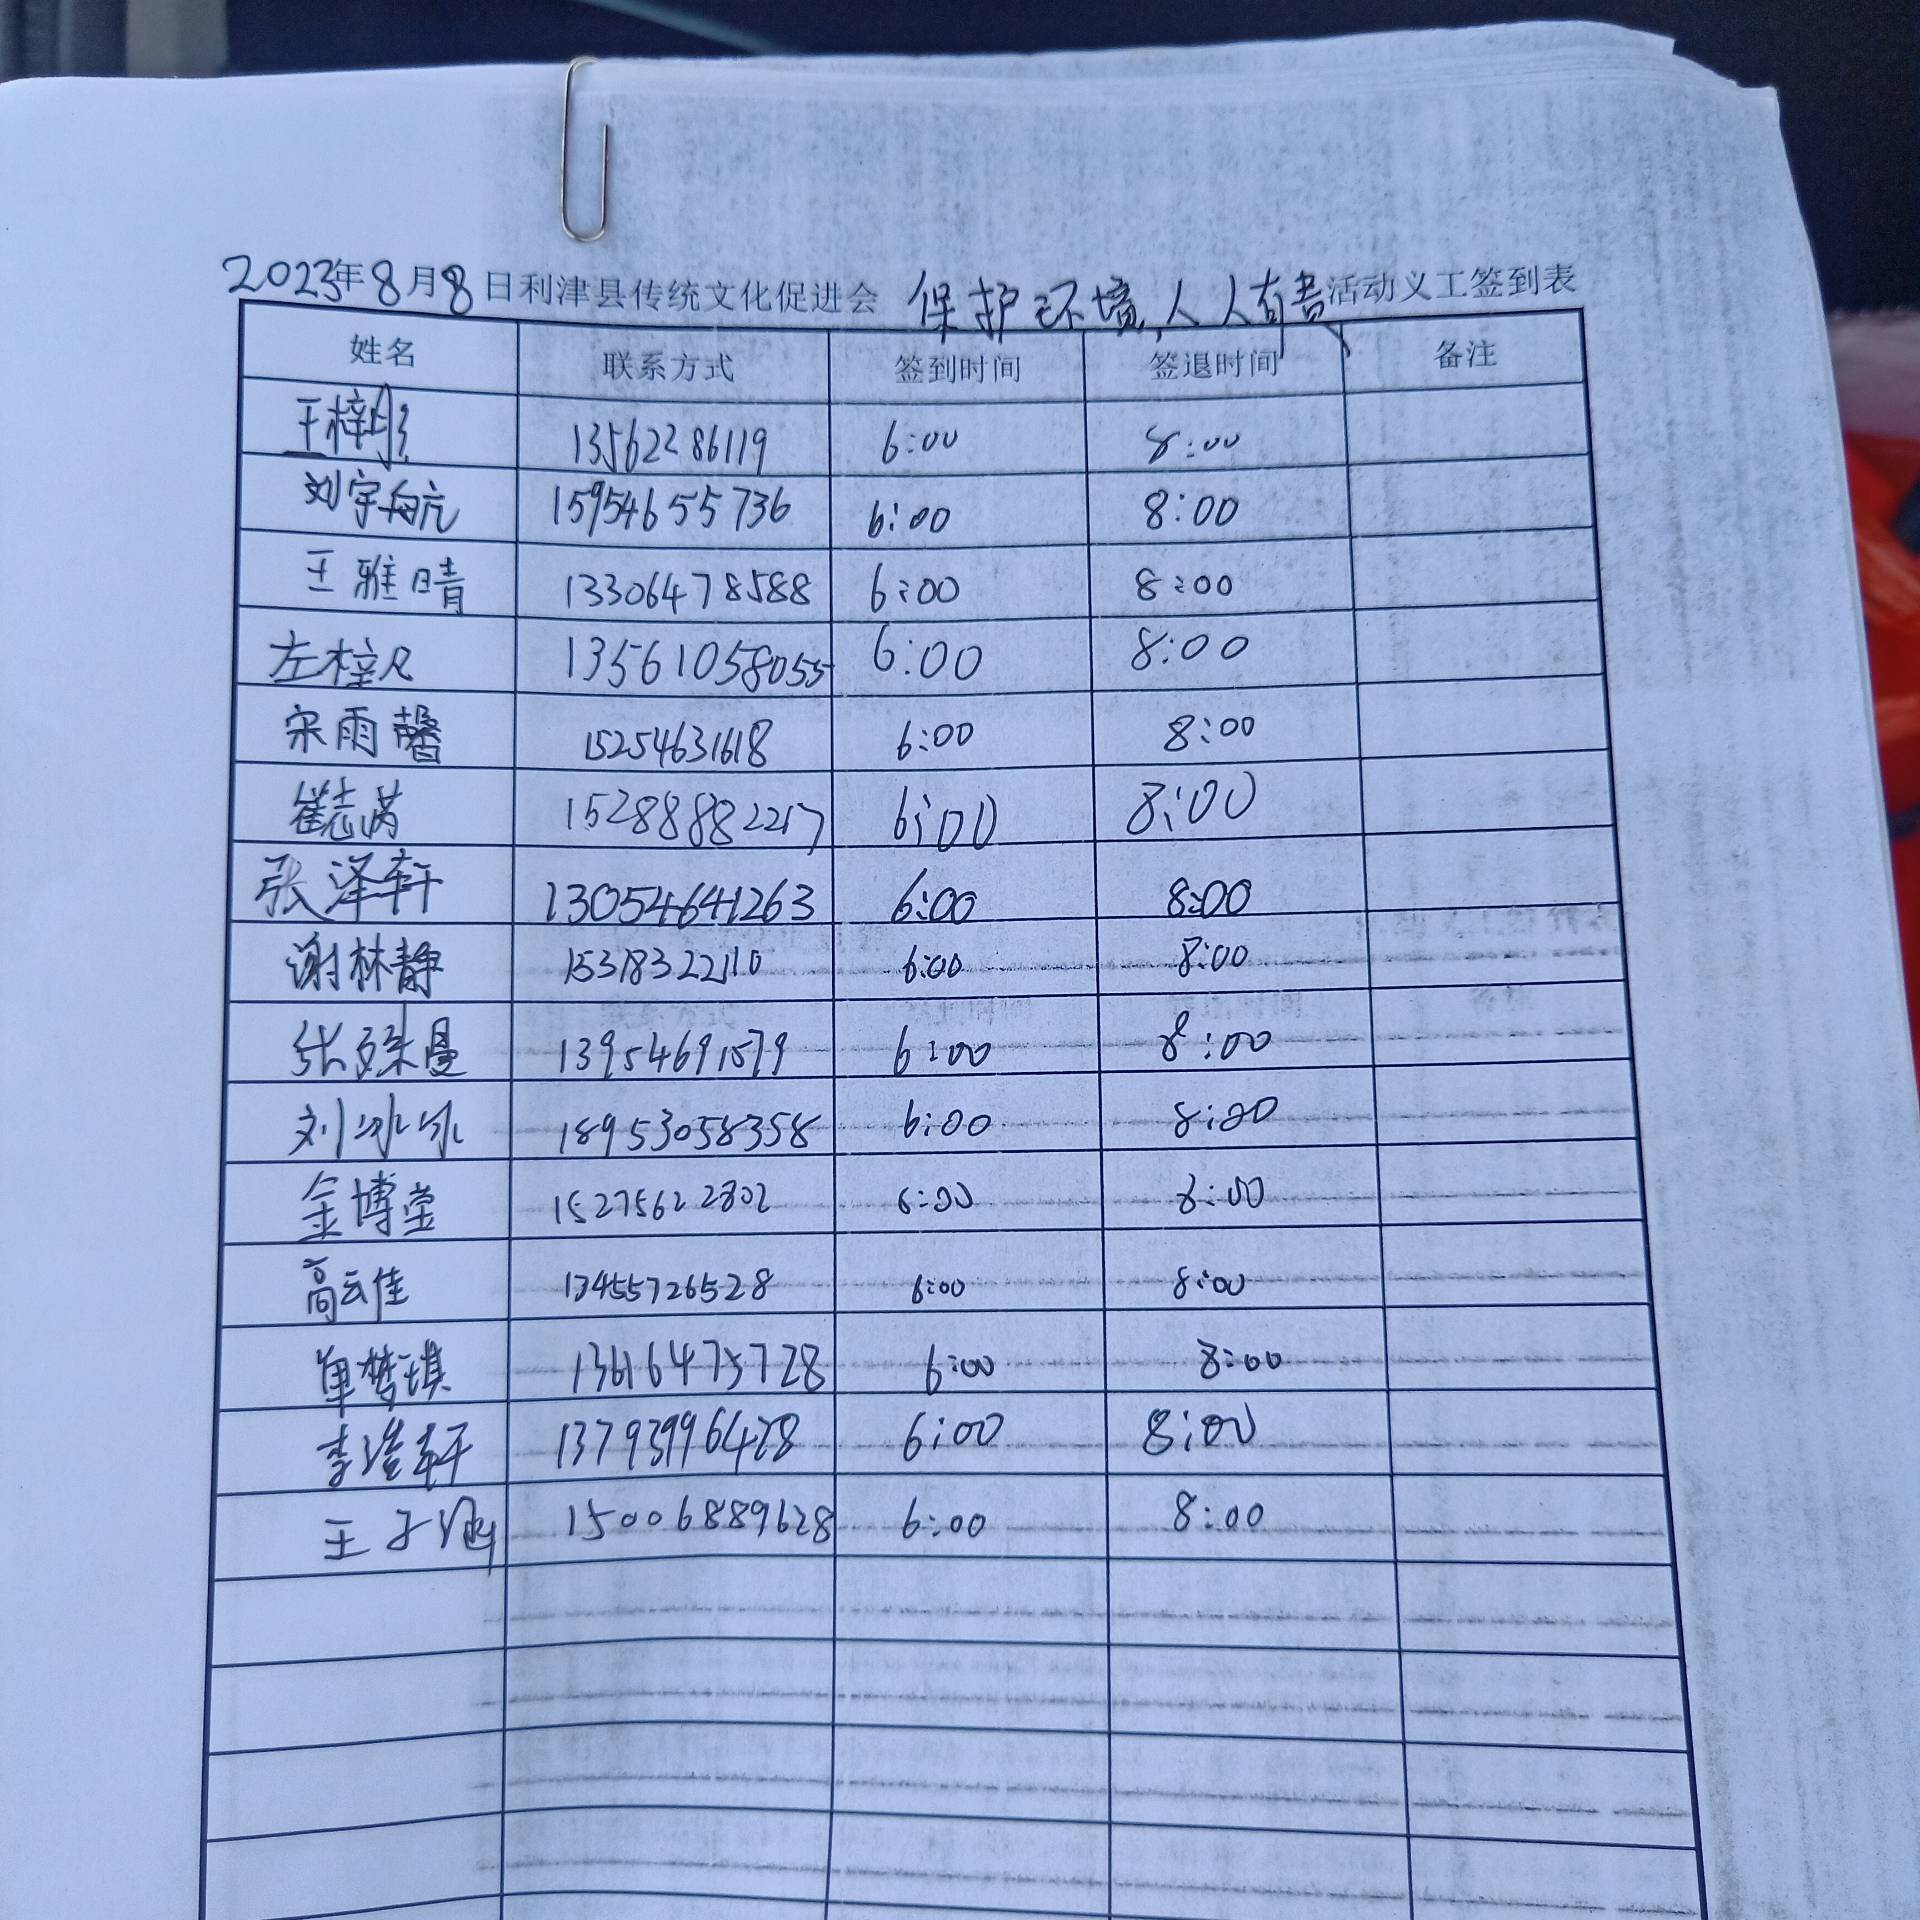 2023年8月8日利津县传统文化促进会 保护环境,人人有责活动义工签到表
姓名 联系方式 签到时间 签退时间 备注
王梓彤 13562286119 6:00 8:00
刘宇航 15954655736 6:00 8:00
王雅晴 13306478588 6:00 8:00
左梓凡 13561058055 6:00 8:00
宋雨馨 15254631618 6:00 8:00
崔志芮 15288882217 6:00 8:00
张泽轩 13054641263 6:00 8:00
谢林静 15318322110 6:00 8:00
张殊曼 13954691579 6:00 8:00
刘冰冰 18953058358 6:00 8:00
金博莹 15275622802 6:00 8:00
高云佳 13455726528 6:00 8:00
单梦琪 13616475728 6:00 8:00
李滢轩 13793996428 6:00 8:00
王子涵 15006889628 6:00 8:00